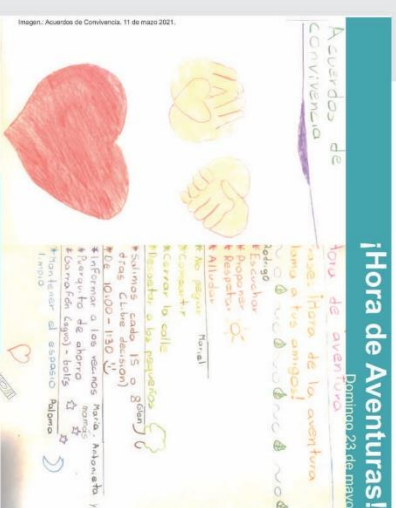 Imagen.: Acuerdos de Convivencia. 11 de mazo 2021.
¡Hora de Aventuras!
Domingo 23 de mayo
Acuerdos de
convivencia
hora de aventura
hora de la aventura
llama a tus amigos!
Rodrigo
*Escuchar
*Proponer
*Respetar
*Alludar
*No pegar Mariel
*Compartir
*Cerrar la calle
*Respetar a los pequeños
*Salimos cada 15 o 8
días (Libre decisión)
*De 10:00 - 1:30
*Informar a los vecinos María, Antonieta y
mamás
*Puerquito de ahorro
*Garrafón (agua) - bolis
*Mantener el espasio Paloma
limpio